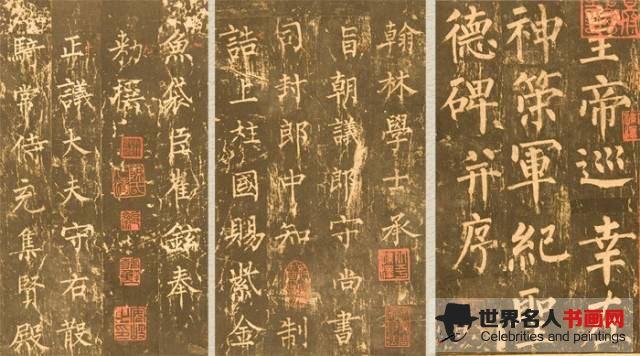 皇帝巡幸左
神策軍紀聖
德碑并序
翰林學士承
旨朝議郎守尚書
司封郎中知制
誥上柱國賜紫金
魚袋臣崔鉉奉
敕撰
正議大夫守右散
騎常侍充集賢殿
世界名人书画网
Celebrities and paintings